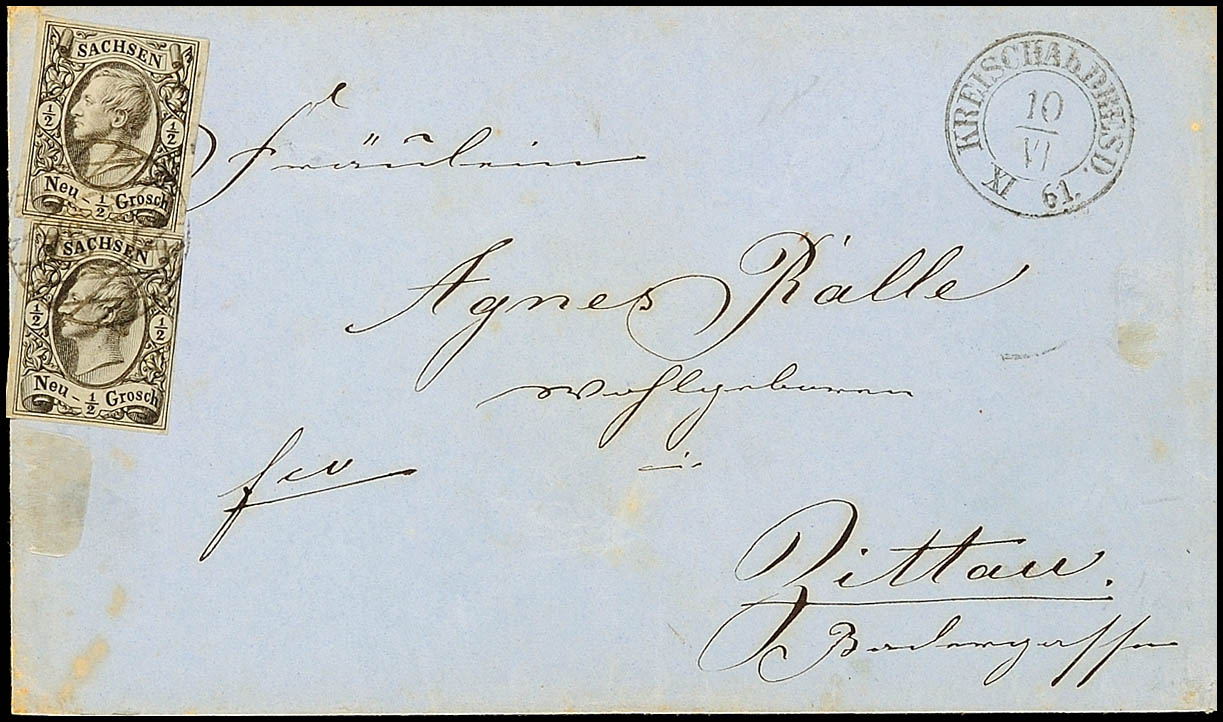 SACHSEN
½ ½
Neu - ½ Grosch
SACHSEN
½ ½
Neu - ½ Grosch
KREISCHA b. DRESD.
10
VI
IX 61.
Fräulein
Agnes Rälle
Wohlgeboren
fco
in
Zittau.
Badergasse